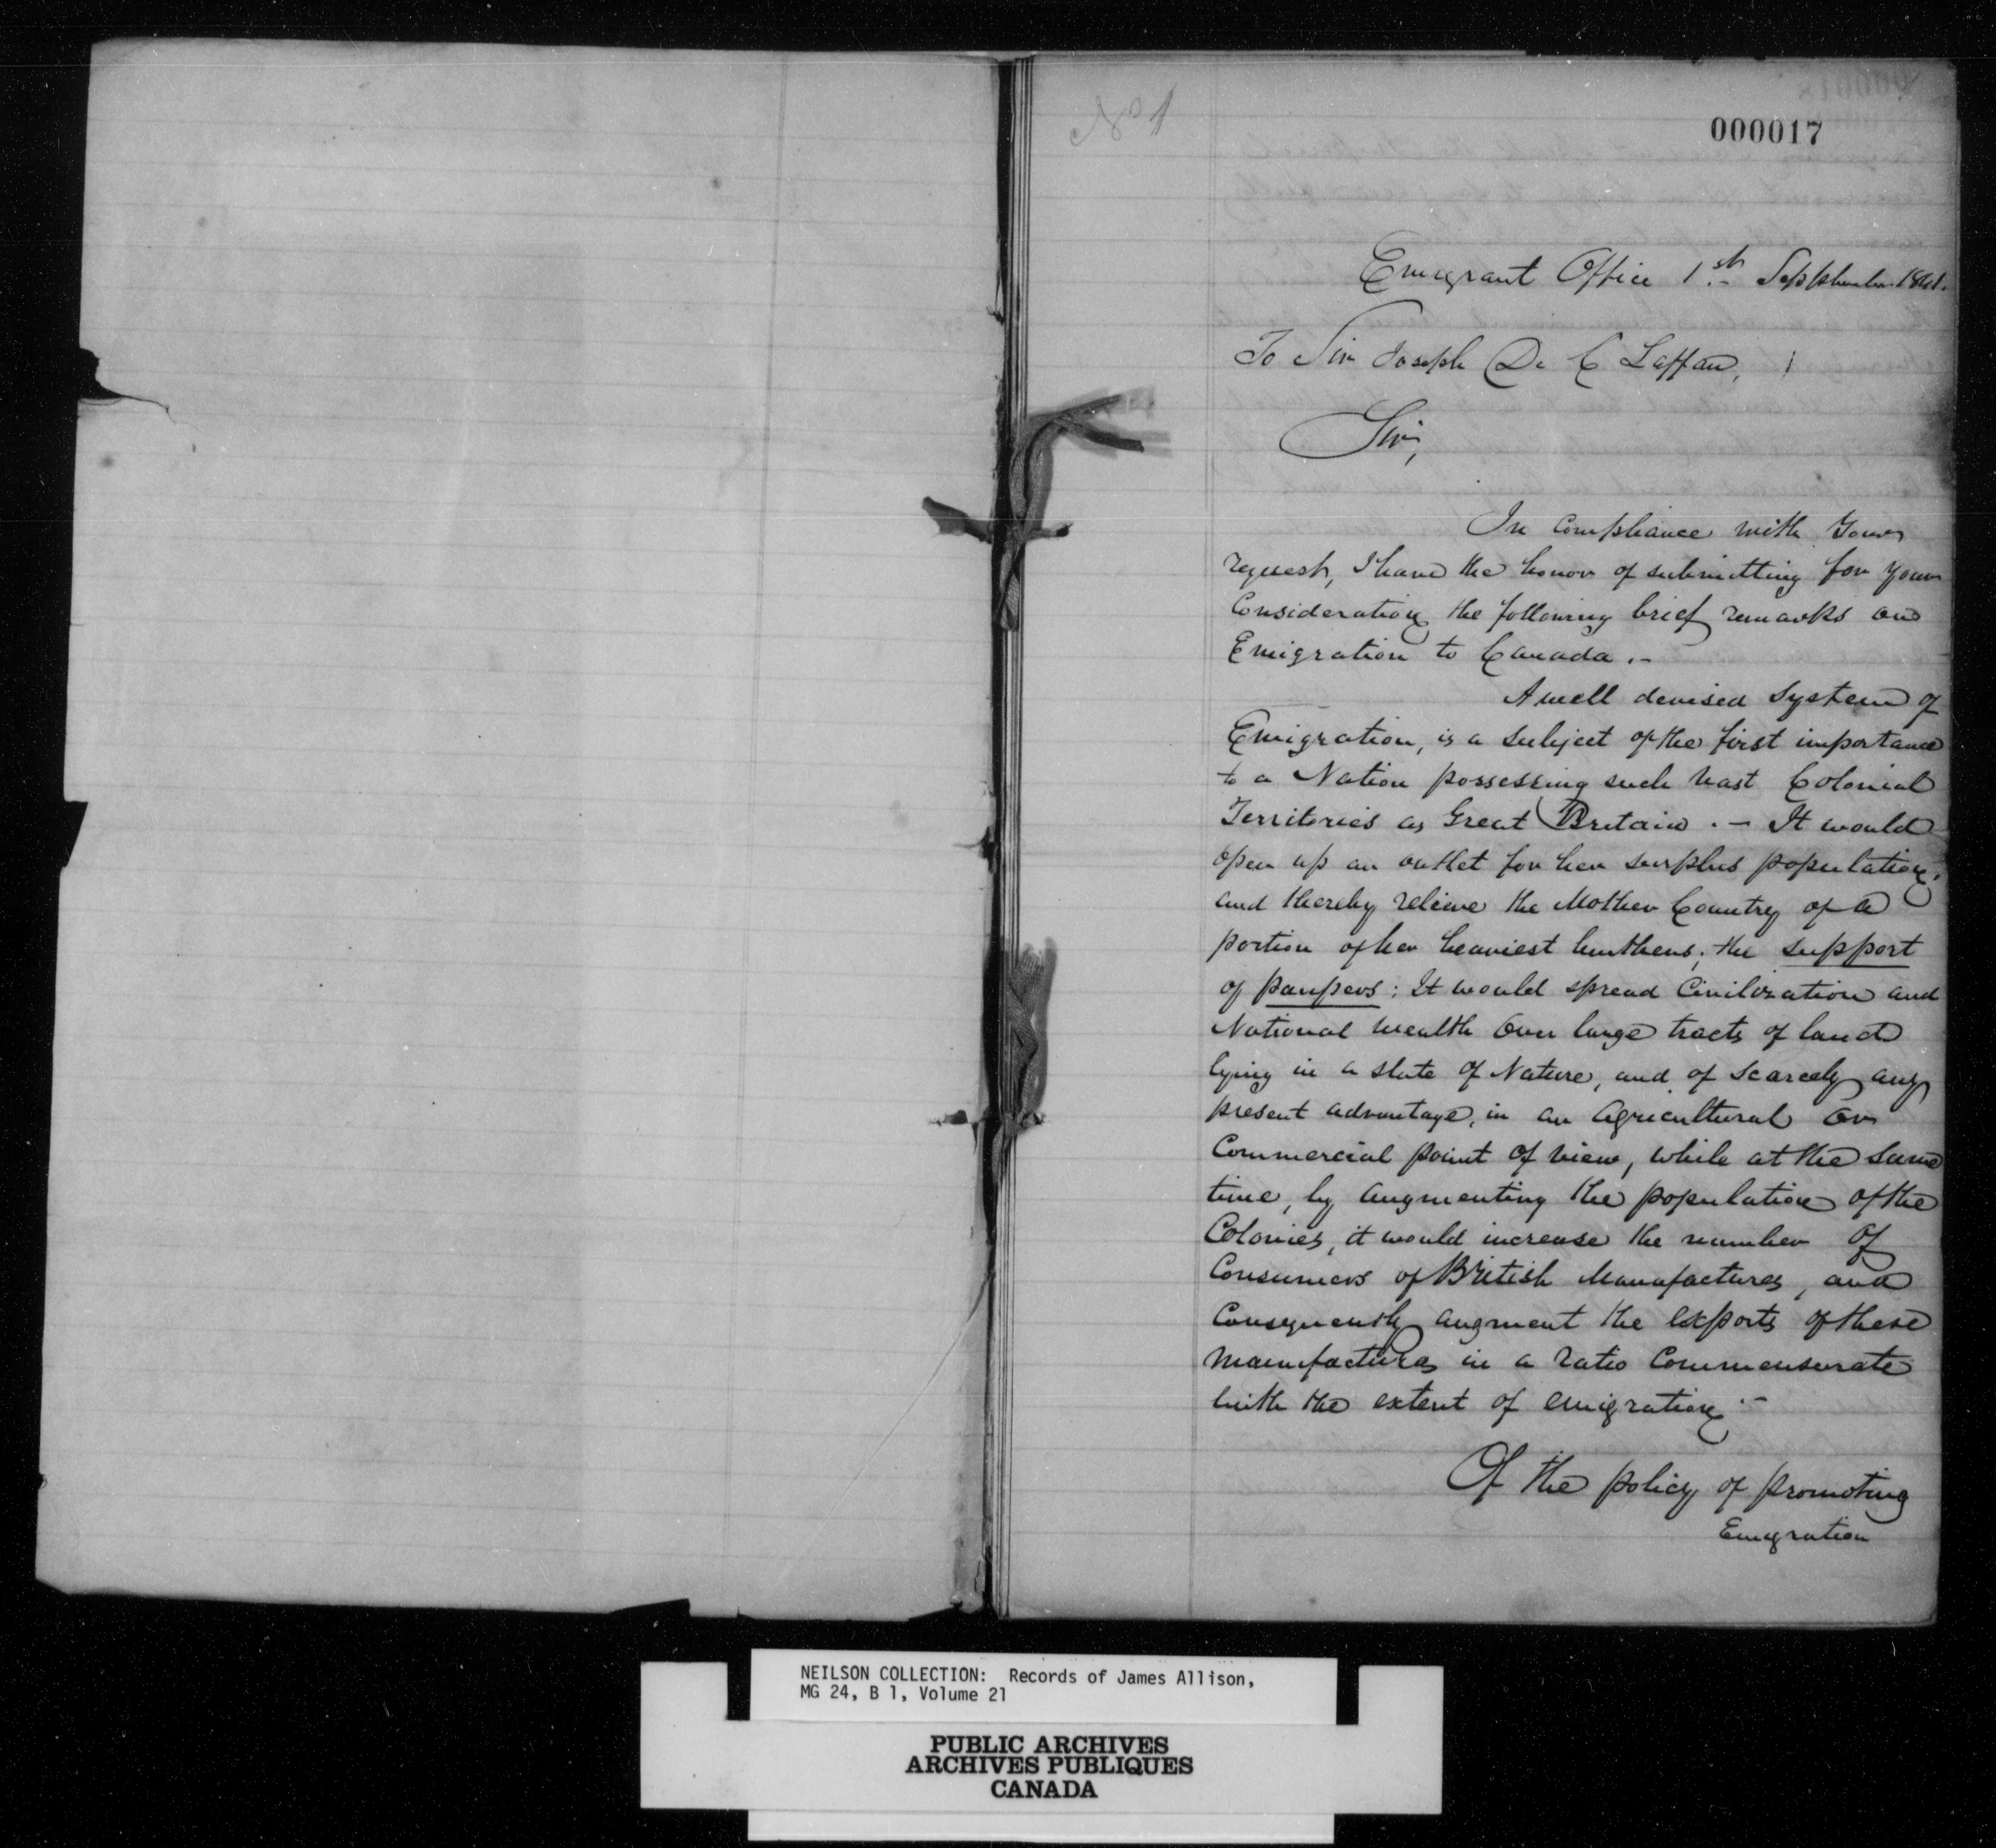 No 1
000017
Emigrant Office 1st September 1841.
To Sir Joseph De C Laffan,
Sir,
In compliance with Your
request, I have the honor of submitting for your
Consideration the following brief remarks on
Emigration to Canada .-
A well devised System of
Emigration, is a subject of the first importance
to a Nation possessing such vast Colonial
Territories as Great Britain . - It would
open up an outlet for her surplus population,
and thereby relieve the Mother Country of a
portion of her heaviest burthens; the support
of paupers : It would spread Civilization and
National wealth over large tracts of land
lying in a state of Nature, and of scarcely any
present advantage, in an Agricultural or
Commercial point of view, while at the same
time, by augmenting the population of the
Colonies, it would increase the number of
Consumers of British Manufactures, and
Consequently augment the exports of these
Manufactures in a ratio Commensurate
with the extent of emigration. -
Of the policy of promoting
Emigration
NEILSON COLLECTION: Records of James Allison,
MG 24, B 1, Volume 21
PUBLIC ARCHIVES
ARCHIVES PUBLIQUES
CANADA